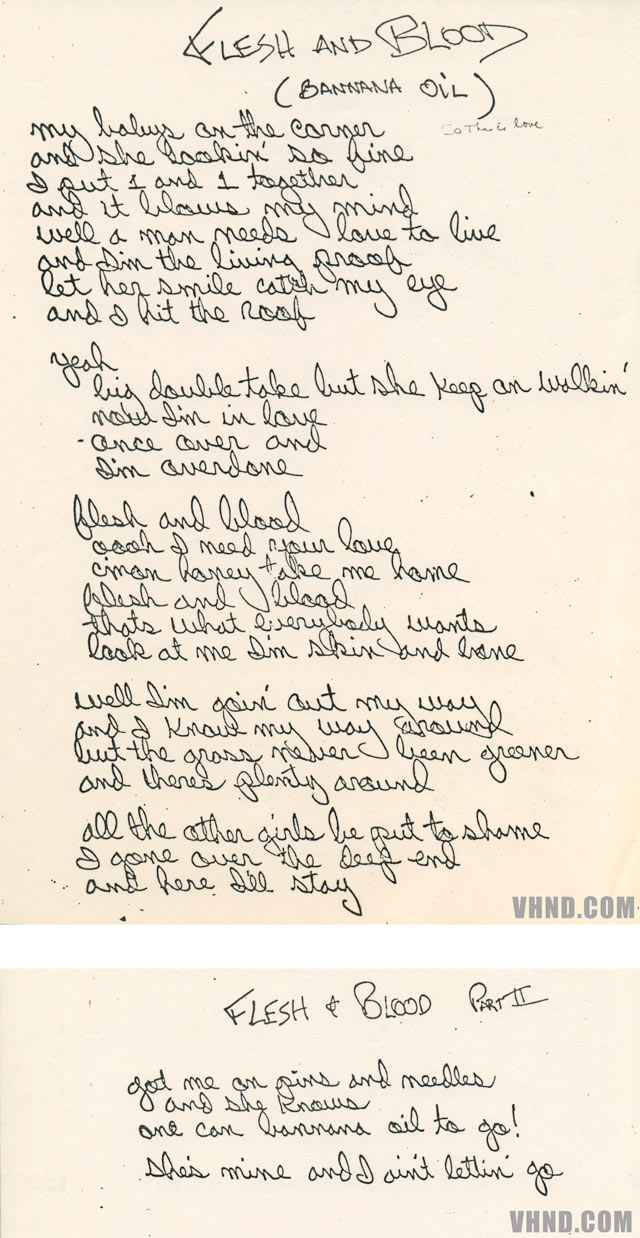 FLESH AND BLOOD
(BANNANA OIL)
So this is love
my babys on the corner
and she lookin' so fine
I put 1 and 1 together
and it blows my mind
well a man needs love to live
and Im the living proof
let her smile catch my eye
and I hit the roof
yeah
big double take but she keep on walkin'
now Im in love
once over and
Im overdone
flesh and blood
oooh I need your love
c'mon honey take me home
flesh and blood
thats what everybody wants
look at me Im skin and bone
well Im goin' out my way
and I know my way around
but the grass never been greener
and theres plenty around
all the other girls be put to shame
I gone over the deep end
and here I'll stay
VHND.COM
FLESH & BLOOD PART II
got me on pins and needles
and she knows
one can bannana oil to go!
she's mine and I ain't lettin' go
VHND.COM